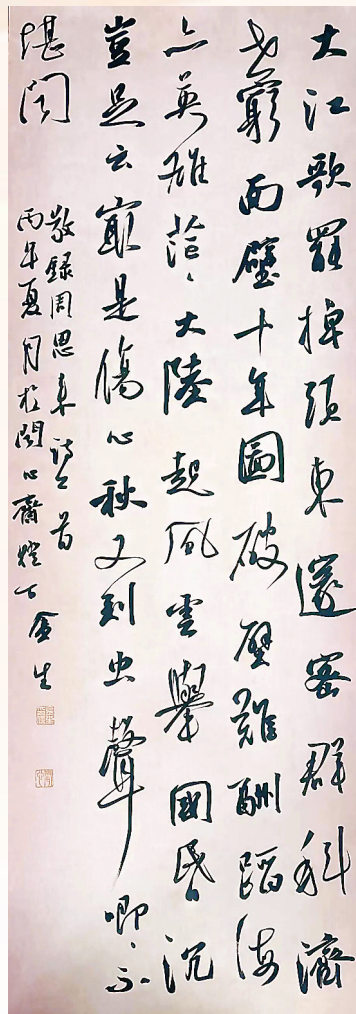 大江歌罷掉頭東邃密群科濟
世窮面壁十年圖破壁難酬蹈海
亦英雄茫〻大陸起風雲舉國昏沉
豈足云最是傷心秋又到虫聲唧〻不
堪聞
敬録周恩來詩二首
丙年夏月於心齋